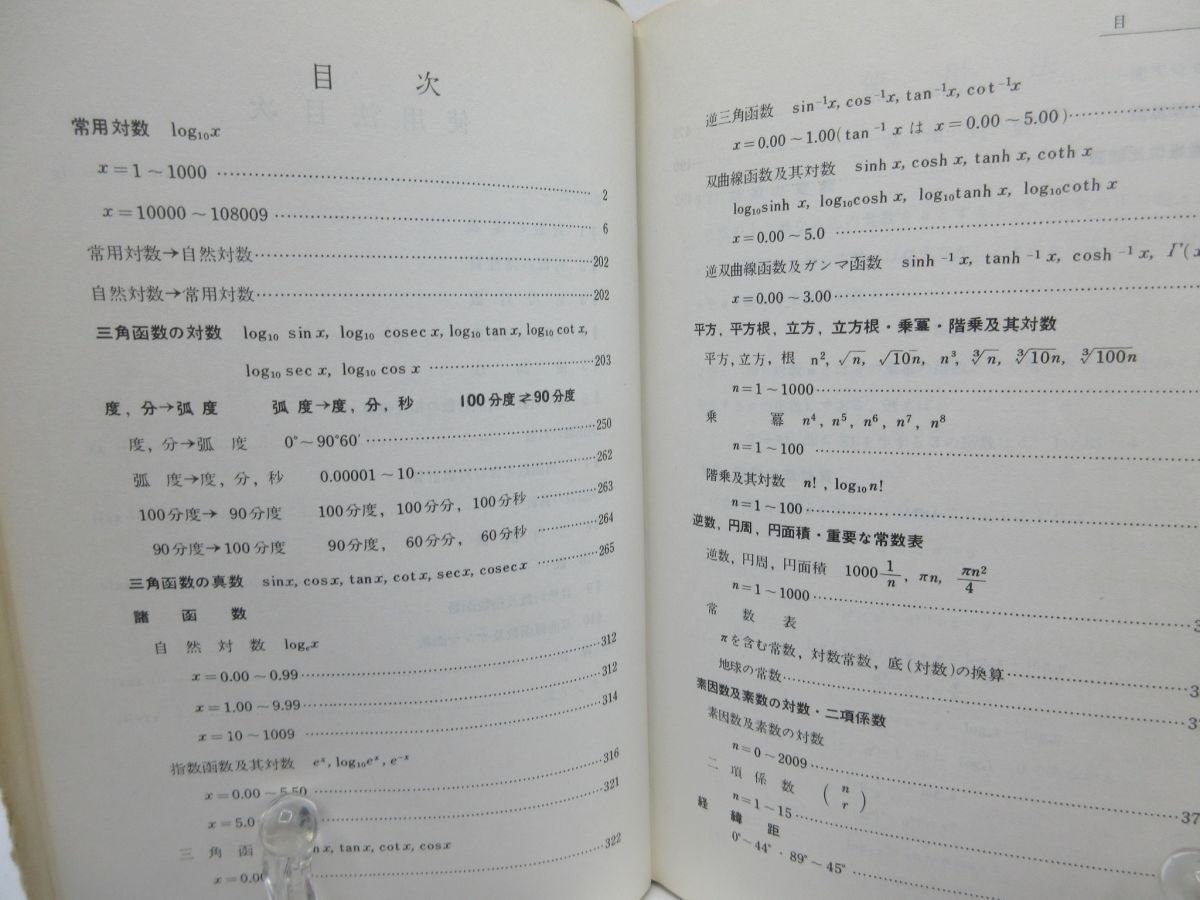 目　次
常用対数 log₁₀x
x=1～1000 ……… 2
x=10000～108009 ……… 6
常用対数→自然対数 ……… 202
自然対数→常用対数 ……… 202
三角函数の対数 log₁₀ sin x, log₁₀ cosec x, log₁₀ tan x, log₁₀ cot x,
log₁₀ sec x, log₁₀ cos x ……… 203
度, 分→弧度 弧度→度, 分, 秒 100分度⇄90分度
度, 分→弧 度 0°～90°60′ ……… 250
弧 度→度, 分, 秒 0.00001～10 ……… 262
100分度→ 90分度 100分度, 100分分, 100分秒 ……… 263
90分度→100分度 90分度, 60分分, 60分秒 ……… 264
三角函数の真数 sinx, cosx, tanx, cotx, secx, cosecx ……… 265
諸 函 数
自 然 対 数 logₑx
x=0.00～0.99 ……… 312
x=1.00～9.99 ……… 312
x=10～1009 ……… 314
指数函数及其対数 eˣ, log₁₀eˣ, e⁻ˣ
x=0.00～5.50 ……… 316
x=5.0 ……… 321
三 角 函 nx, tanx, cotx, cosx
x=0.00 ……… 322
目
逆三角函数 sin⁻¹x, cos⁻¹x, tan⁻¹x, cot⁻¹x
x=0.00～1.00(tan⁻¹ x は x=0.00～5.00) ………
双曲線函数及其対数 sinh x, cosh x, tanh x, coth x
log₁₀sinh x, log₁₀cosh x, log₁₀tanh x, log₁₀coth x
x=0.00～5.0 ………
逆双曲線函数及ガンマ函数 sinh⁻¹x, tanh⁻¹x, cosh⁻¹x, Γ(x
x=0.00～3.00 ………
平方, 平方根, 立方, 立方根・乗冪・階乗及其対数
平方, 立方, 根 n², √n, √10n, n³, ∛n, ∛10n, ∛100n
n=1～1000 ………
乗 冪 n⁴, n⁵, n⁶, n⁷, n⁸
n=1～100 ………
階乗及其対数 n!, log₁₀n!
n=1～100 ………
逆数, 円周, 円面積・重要な常数表
逆数, 円周, 円面積 1000 1/n, πn, πn²/4
n=1～1000 ……… 3
常 数 表
πを含む常数, 対数常数, 底(対数)の換算 ……… 3
地球の常数 ……… 3
素因数及素数の対数・二項係数
素因数及素数の対数
n=0～2009 ………
二 項 係 数 (n r)
n=1～15 ……… 37
経 緯 距
0°～44°・89°～45° ………